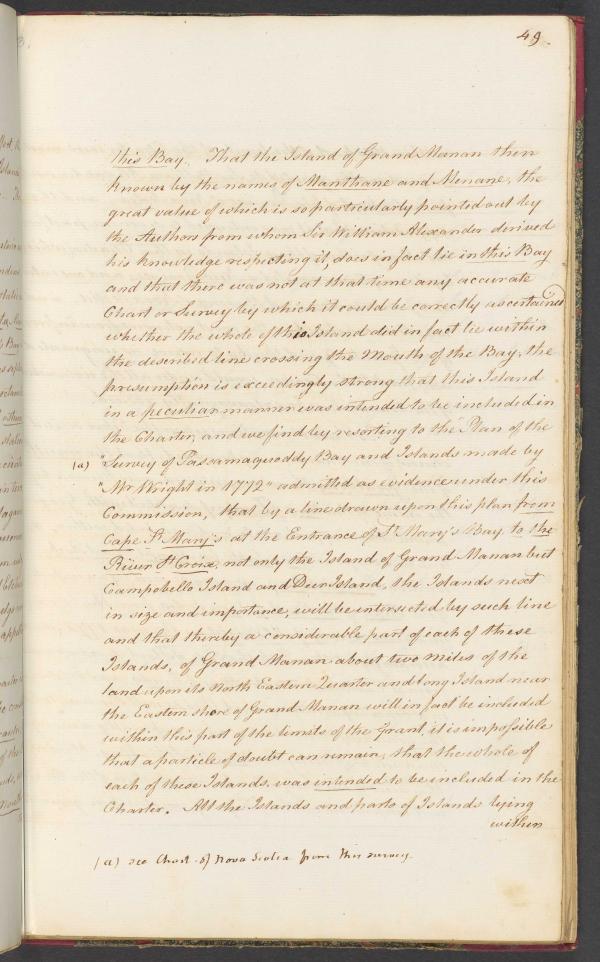 49.
this Bay. That the Island of Grand Manan then
known by the names of Manthane and Menane, the
great value of which is so particularly pointed out by
the Authors from whom Sir William Alexander derived
his knowledge respecting it, does in fact lie in this Bay
and that there was not at that time any accurate
Chart or Survey by which it could be correctly ascertained
whether the whole of this Island did in fact lie within
the described line crossing the Mouth of the Bay, the
presumption is exceedingly strong that this Island
in a peculiar manner was intended to be included in
the Charter, and we find by resorting to the Plan of the
(a) "Survey of Passamaquoddy Bay and Islands made by
"Mr Wright in 1772" admitted as evidence under this
Commission, that by a line drawn upon this plan from
Cape St. Mary's at the Entrance of St Mary's Bay to the
River St Croix, not only the Island of Grand Manan but
Campobello Island and Deer Island, the Islands next
in size and importance, will be intersected by such line
and that thereby a considerable part of each of these
Islands, of Grand Manan about two miles of the
land upon its North Eastern Quarter and long Island near
the Eastern shore of Grand Manan will in fact be included
within this part of the limits of the Grant, it is impossible
that a particle of doubt can remain, that the whole of
each of these Islands, was intended to be included in the
Charter. All the Islands and parts of Islands lying
within
(a) see Chart of Nova Scotia from this survey.